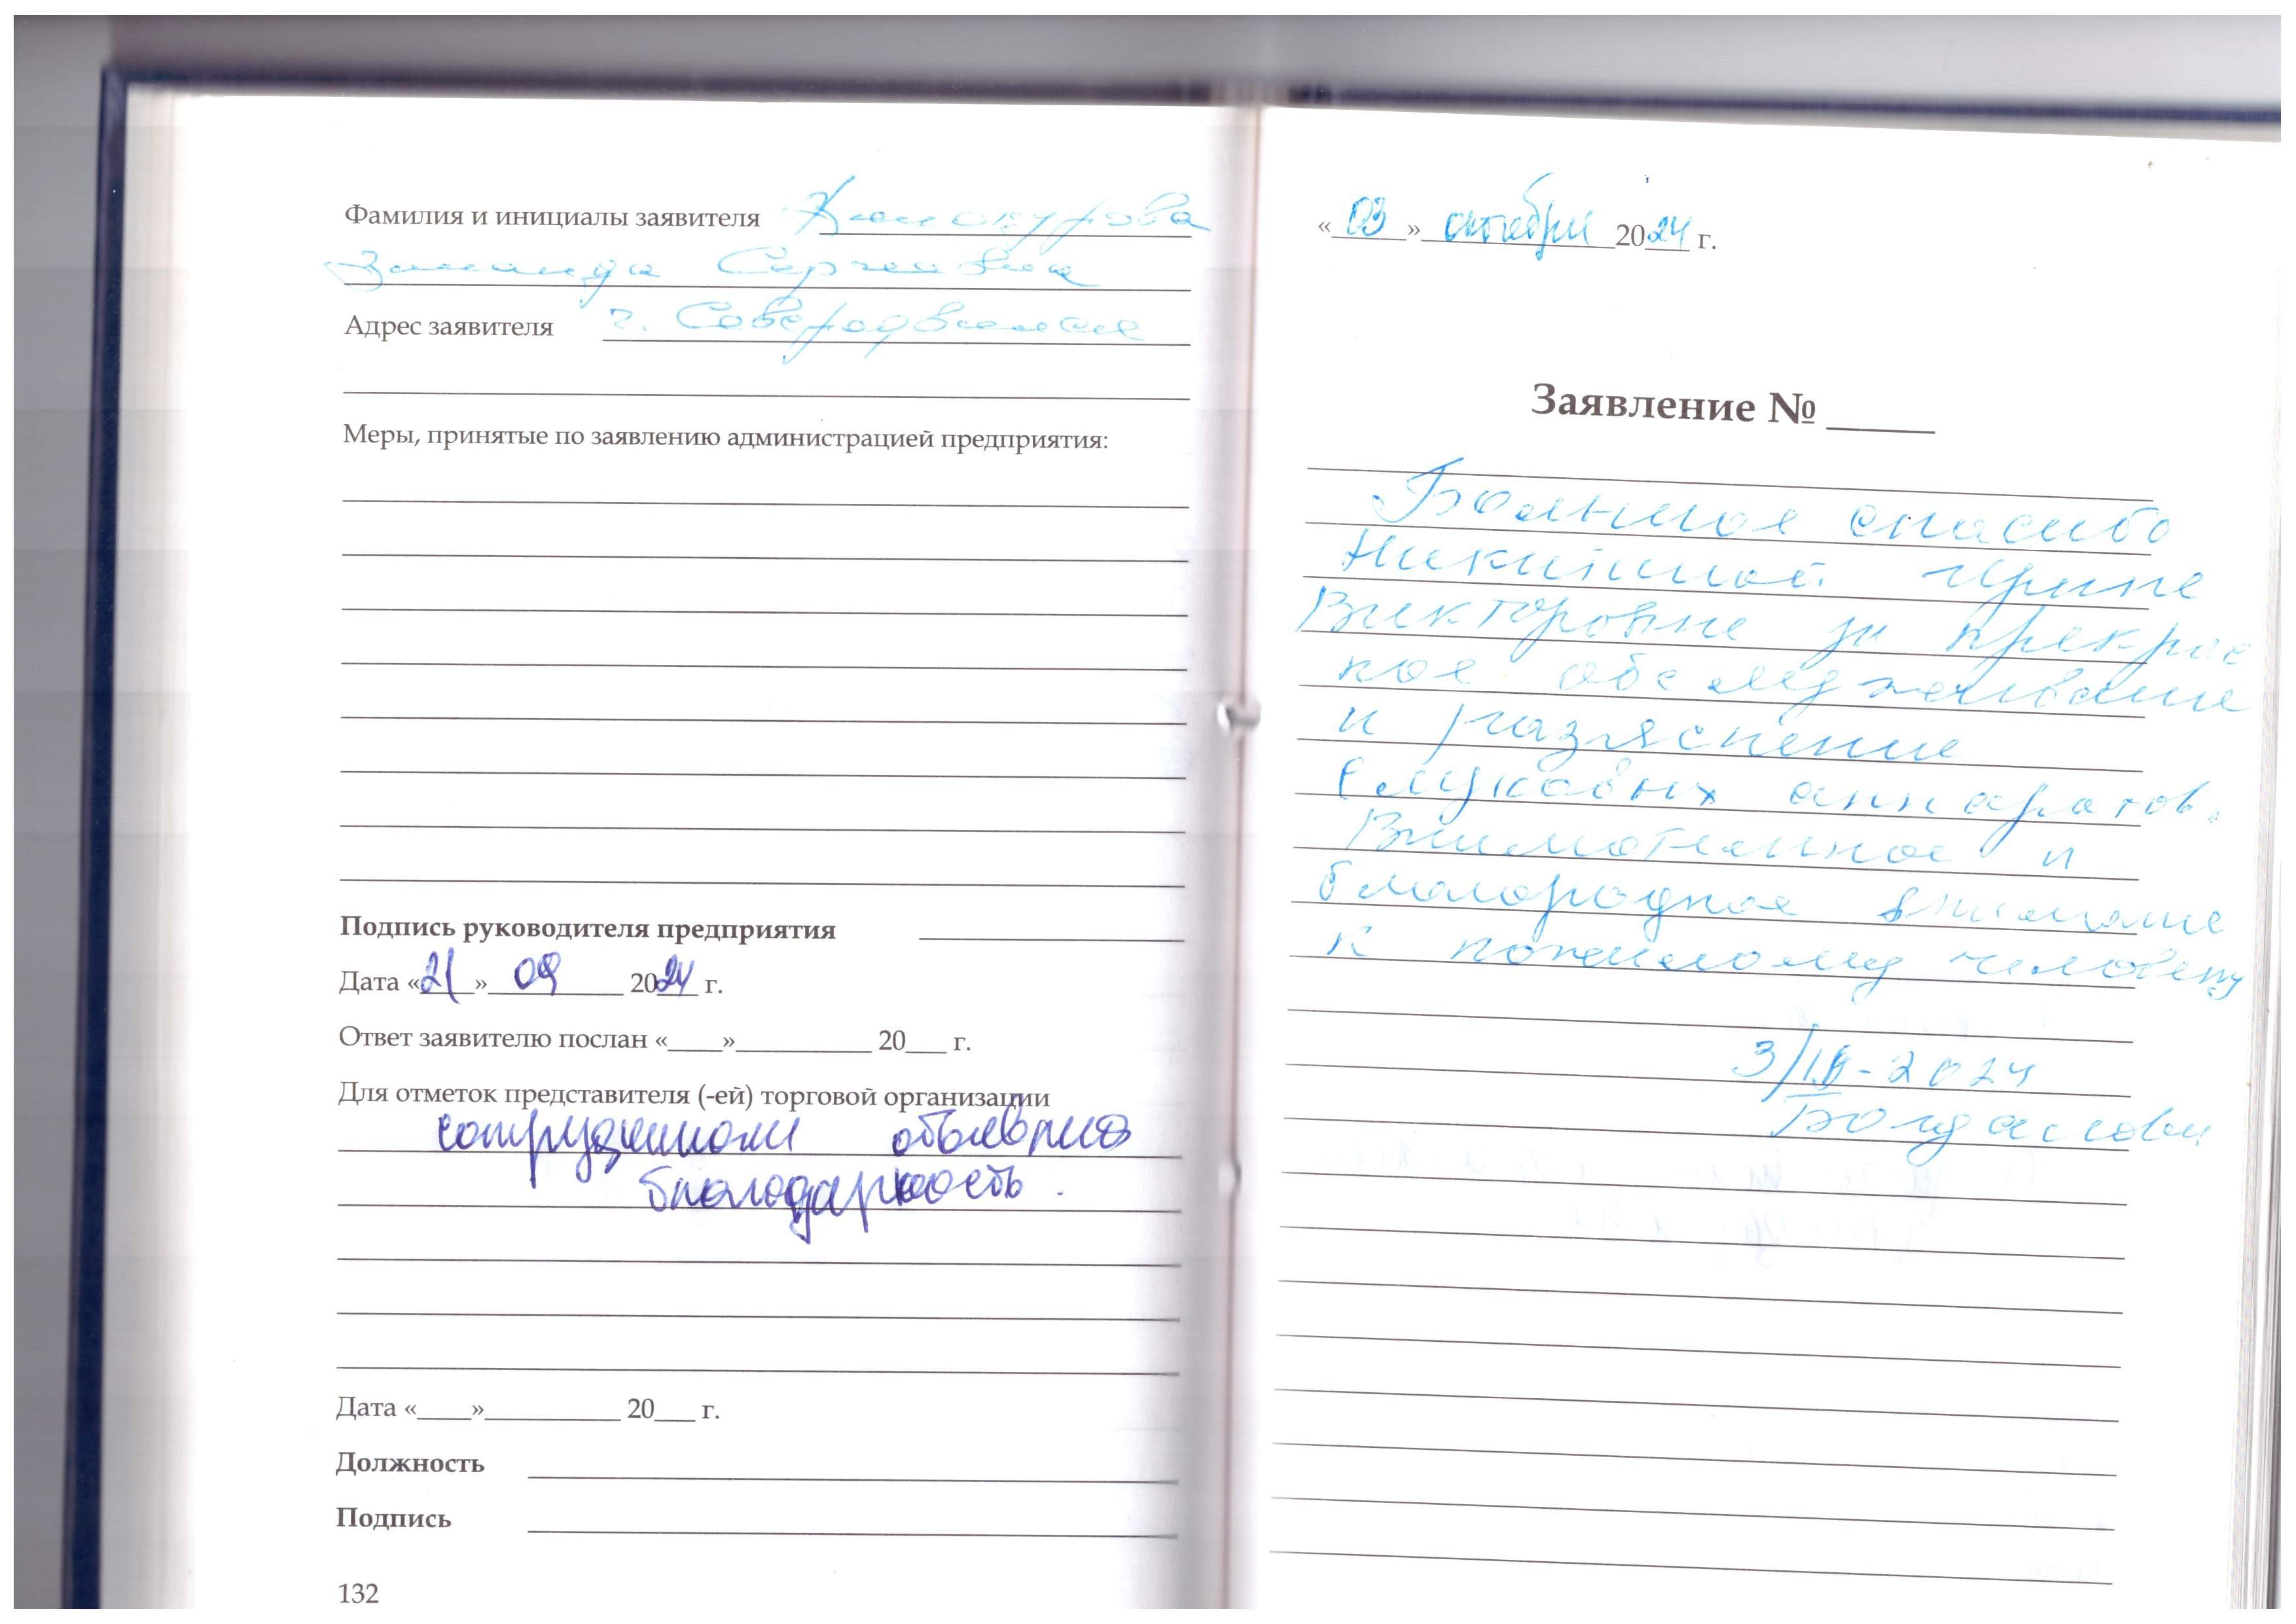 Фамилия и инициалы заявителя
Сергеевна
Адрес заявителя г. Северодвинск
Меры, принятые по заявлению администрацией предприятия:
Подпись руководителя предприятия
Дата «21» 09 2024 г.
Ответ заявителю послан «____»__________ 20___ г.
Для отметок представителя (-ей) торговой организации
сотрудникам объявлена
благодарность.
Дата «____»__________ 20___ г.
Должность
Подпись
132
«03» октября 2024 г.
Заявление № _____
Большое спасибо
Никитиной Ирине
Викторовне за прекрас
ное обслуживание
и разяснение
слуховых аппаратов.
Внимательное и
благородное внимание
к пожилому человеку
3/10-2024